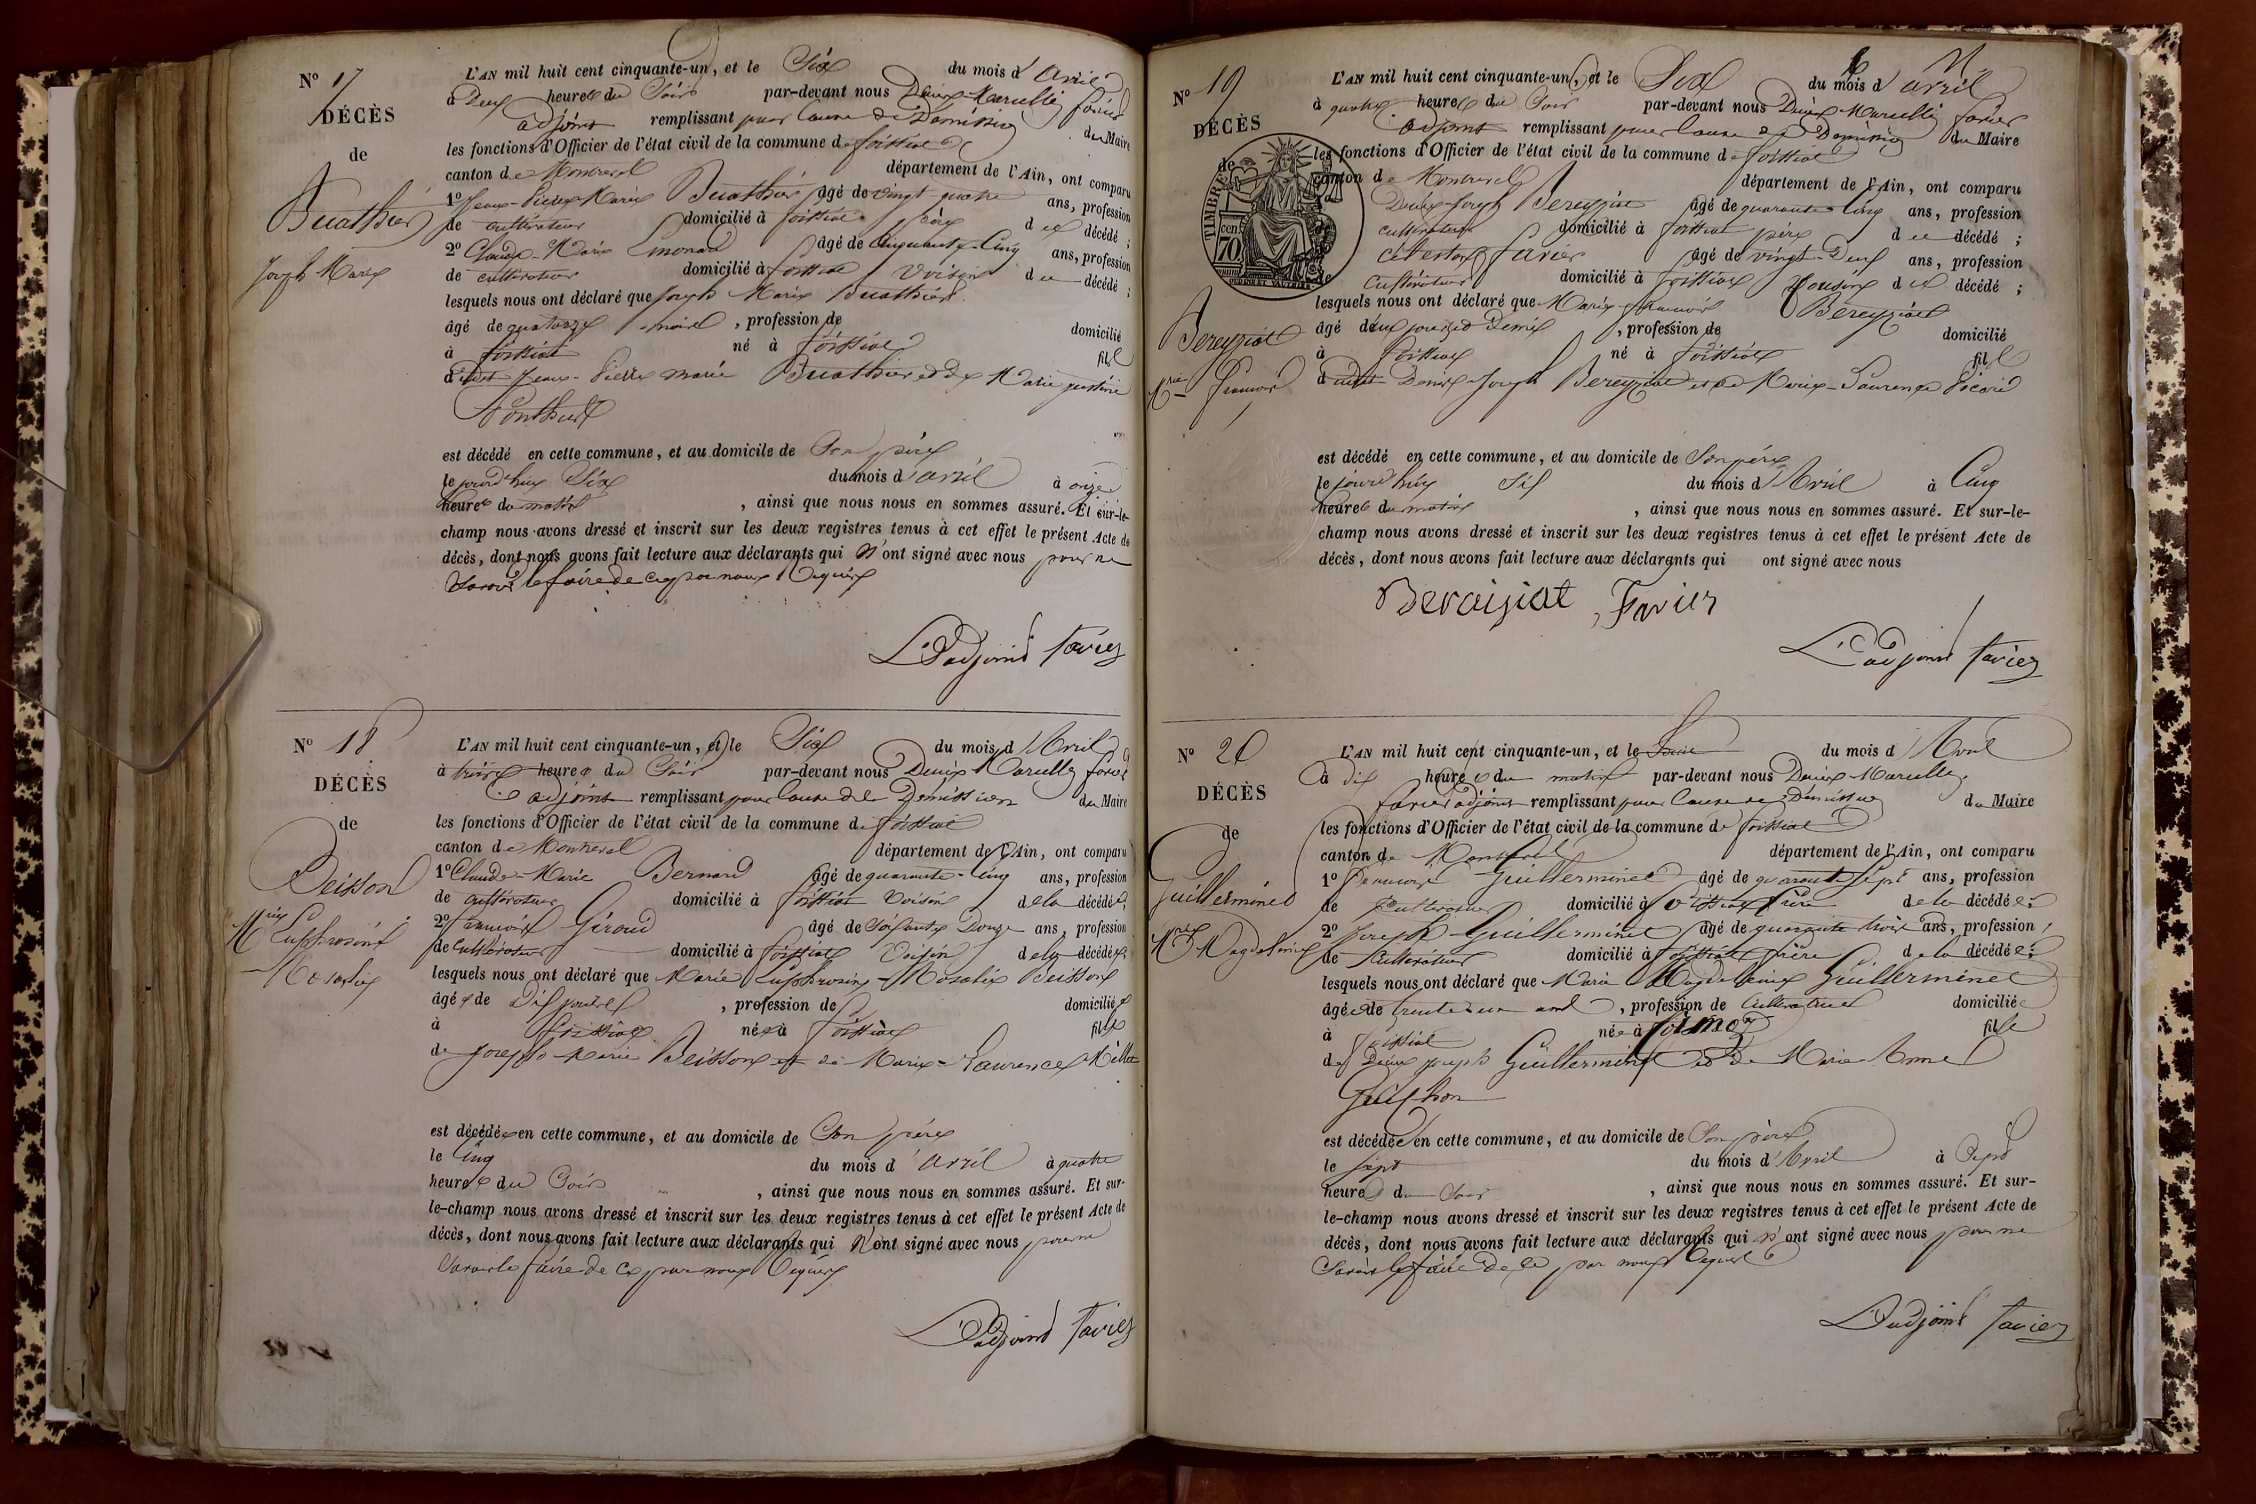 N° 17
DÉCÈS
de
Buathier
Joseph Marie
L'AN mil huit cent cinquante-un, et le Six du mois d'avril
à Deux heures du Soir par-devant nous Denis Marcelly favier
adjoint remplissant pour Cause de Démission du Maire
les fonctions d'Officier de l'état civil de la commune de foissiat
canton de Montrevel département de l'Ain, ont comparu
1° Jean-Pierre Marie Buathier âgé de vingt quatre ans, profession
de cultivateur domicilié à foissiat père du décédé ;
2° Claude-Marie âgé de Cinquante-Cinq ans, profession
de cultivateur domicilié à foissiat Voisin du décédé ;
lesquels nous ont déclaré que Joseph Marie Buathier
âgé de quatorze mois, profession de domicilié
à foissiat né à foissiat fils
dudit Jean-Pierre Marie Buathier et de Marie
est décédé en cette commune, et au domicile de Son père
le jourd'hui Six du mois d'avril à onze
heures du matin, ainsi que nous nous en sommes assuré. Et sur-le-
champ nous avons dressé et inscrit sur les deux registres tenus à cet effet le présent Acte de
décès, dont nous avons fait lecture aux déclarants qui N'ont signé avec nous pour ne
Savoir le faire de ce par nous Requis
L'adjoint favier
N° 18
DÉCÈS
de
Beisson
Mrie Euphrosine
Rosalie
L'AN mil huit cent cinquante-un, et le Six du mois d'Avril
à trois heures du Soir par-devant nous Denis Marcelly favier
adjoint remplissant pour Cause de Démission du Maire
les fonctions d'Officier de l'état civil de la commune de foissiat
canton de Montrevel département de l'Ain, ont comparu
1° Claude-Marie Bernard âgé de quarante-Cinq ans, profession
de cultivateur domicilié à foissiat Voisin de la décédée,
2° françois Giroud âgé de Soixante Douze ans, profession
de cultivateur domicilié à foissiat Voisin de la décédée,
lesquels nous ont déclaré que Marie Euphrosine-Rosalie Beisson
âgée de Dix jours, profession de domiciliée
à foissiat née à foissiat fille
de Joseph Marie Beisson et de Marie-Laurence Millet
est décédée en cette commune, et au domicile de Son père
le Cinq du mois d'avril à quatre
heures du Soir, ainsi que nous nous en sommes assuré. Et sur-
le-champ nous avons dressé et inscrit sur les deux registres tenus à cet effet le présent Acte de
décès, dont nous avons fait lecture aux déclarants qui N'ont signé avec nous pour ne
Savoir le faire de ce par nous Requis
L'adjoint favier
N° 19
DÉCÈS
de
TIMBRE
70 cen.
Bereyziat
Mrie françois
L'AN mil huit cent cinquante-un, et le Six du mois d'avril
à quatre heures du Soir par-devant nous Denis Marcelly favier
adjoint remplissant pour Cause de Démission du Maire
les fonctions d'Officier de l'état civil de la commune de foissiat
canton de Montrevel département de l'Ain, ont comparu
Denis-Joseph Bereyziat âgé de quarante-Cinq ans, profession
cultivateur domicilié à foissiat père du décédé ;
favier âgé de vingt-Deux ans, profession
Cultivateur domicilié à foissiat Cousin du décédé ;
lesquels nous ont déclaré que Marie-françois Bereyziat
âgé deux jours et Demie, profession de domicilié
à foissiat né à foissiat fils
dudit Denis-Joseph Bereyziat et de Marie-Laurence
est décédé en cette commune, et au domicile de Son père
le jourd'hui Six du mois d'Avril à Cinq
heures du matin, ainsi que nous nous en sommes assuré. Et sur-le-
champ nous avons dressé et inscrit sur les deux registres tenus à cet effet le présent Acte de
décès, dont nous avons fait lecture aux déclarants qui ont signé avec nous
Beraiziat, Favier
L'adjoint favier
N° 20
DÉCÈS
de
Guillerminet
Mrie Magdeleine
L'AN mil huit cent cinquante-un, et le du mois d'Avril
à dix heures du matin par-devant nous Denis Marcelly
favier adjoint remplissant pour Cause de Démission du Maire
les fonctions d'Officier de l'état civil de la commune de foissiat
canton de Montrevel département de l'Ain, ont comparu
1° françois Guillerminet âgé de quarante Sept ans, profession
de Cultivateur domicilié à foissiat frère de la décédée ;
2° Joseph Guillerminet âgé de quarante trois ans, profession
de Cultivateur domicilié à foissiat frère de la décédée ;
lesquels nous ont déclaré que Marie Magdeleine Guillerminet
âgée de trente un ans, profession de Cultivatrice domiciliée
à foissiat née à fille
de Denis Joseph Guillerminet et de Marie Anne
Guichon
est décédée en cette commune, et au domicile de Son père
le Sept du mois d'Avril à Sept
heures du Soir, ainsi que nous nous en sommes assuré. Et sur-
le-champ nous avons dressé et inscrit sur les deux registres tenus à cet effet le présent Acte de
décès, dont nous avons fait lecture aux déclarants qui N'ont signé avec nous pour ne
Savoir le faire de ce par nous Requis
L'adjoint favier